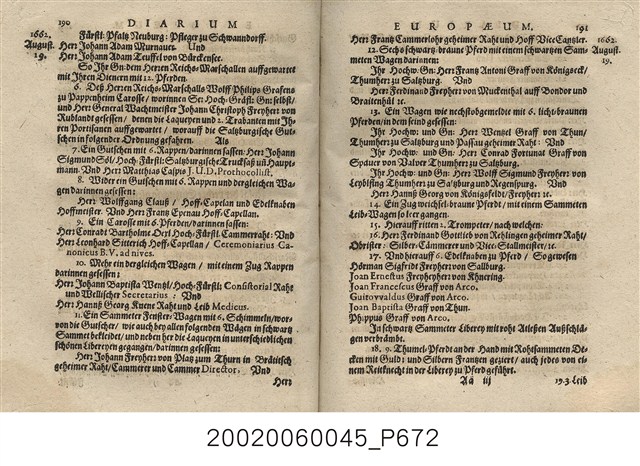 190 DIARIUM
1662.
August.
19.
Fürstl: Pfaltz Neuburg: Pfleger zu Schwanndorff.
Herr Johann Adam Murnauer. Und
Herr Johann Adam Teuffel von Bürckensee.
So Ihr Gn: dem Herren Reichs-Marschallen auffgewartet
mit Ihren Dienern mit 12. Pferden.
6. Deß Herren Reichs-Marschalls Wolff Philips Grafens
zu Pappenheim Carosse / worinnen Sr: Hoch-Gräfl: Gn: selbst /
und Herr General Wachtmeister Johann Christoph Freyherr von
Rublandt gesessen / denen die Laqueyen und 2. Trabanten mit Ih-
ren Portisanen auffgewartet / worauff die Saltzburgische Gut-
schen in folgender Ordnung gefahren. Als
7. Ein Gutschen mit 6. Rappen / darinnen sassen: Herr Johann
Sigmund Söl / Hoch-Fürstl: Saltzburgische Trucksäß uñ Haupt-
mann. Vnd Herr Matthias Caspis J. U. D. Prothocollist.
8. Wider ein Gutschen mit 6. Rappen und dergleichen Wa-
gen darinnen gesessen:
Herr Wolffgang Clauß / Hoff-Caplan und Edelknaben
Hoffmeister. Vnd Herr Frantz Epenau Hoff-Capellan.
9. Ein Carosse mit 6. Pferden / darinnen sassen:
Herr Conradt Bartholme Derl Hoch-Fürstl: Cammerraht: Vnd
Herr Leonhard Sitterich Hoff-Capellan / Ceremoniarius Ca-
nonicus B. V. ad nives.
10. Mehr ein dergleichen Wagen / mit einem Zug Rappen
darinnen gesessen:
Herr Johann Baptista Wentzl / Hoch-Fürstl: Consistorial Raht
und Wellischer Secretarius: Vnd
Herr Hannß Georg Kuene Raht und Leib Medicus.
11. Ein Sammeter Fenster-Wagen mit 6. Schimmeln / wor-
von die Gutscher / wie auch bey allen folgenden Wägen in schwartz
Sammet bekleidet / und neben her die Laqueyen in unterschiedlichen
schönen Libereyen gegangen / darinnen gesessen:
Herr Johann Freyherr von Platz zum Thurn in Brätisch
geheimer Raht / Cammerer und Cammer Director, Vnd
Herr
EUROPÆUM. 191
1662.
August.
19.
Herr Frantz Cammerlohr geheimer Raht und Hoff-Vice Cantzler.
12. Sechs schwartz-braune Pferd mit einem schwartzen Sam-
meten Wagen darinnen:
Ihr Hochw: Gn: Herr Frantz Antoni Graff von Königseck /
Thumherr zu Saltzburg. Vnd
Herr Ferdinand Freyherr von Muckenthal auff Bondor und
Braitenhül ꝛc.
13. Ein Wagen wie nechst obgemeldet mit 6. licht-braunen
Pferden / in dem seind gesessen:
Ihr Hochw: und Gn: Herr Wentzel Graff von Thun /
Thumherr zu Saltzburg und Passau geheimer Raht: Vnd
Ihr Hochw: und Gn: Herr Conrad Fortunat Graff von
Spaur von Valver Thumherr zu Saltzburg.
Ihr Hochw: und Gn: Herr Wolff Sigmund Freyherr von
Leyblfing Thumherr zu Saltzburg und Regenspurg. Vnd
Herr Hannß Georg von Königsfeld / Freyherr ꝛc.
14. Ein Zug weichsel-braune Pferdt / mit einem Sammeten
Leib-Wagen so leer gangen.
15. Hierauff ritten 2. Trompeter / nach welchen:
16. Herr Ferdinand Gottlieb von Rehlingen geheimer Raht /
Obrister: Silber-Cämmerer und Vice-Stallmeister / ꝛc.
17. Vnd hierauff 6. Edelknaben zu Pferd / So gewesen
Hörman Sigfridt Freyherr von Sallburg.
Joan Ernestus Freyherr von Khuering.
Joan Francescus Graff von Arco.
Guitovvaldus Graff von Arco.
Joan Baptista Graff von Thun.
Philippus Graff von Arco.
In schwartz Sammeter Liberey mit roht Atleßen Außschlä-
gen verbrämbt.
18. 9. Thumel-Pferdt an der Hand mit Roht sammeten De-
cken mit Guld: und Silbern Frantzen geziert / auch jedes von ei-
nem Reitknecht in der Liberey zu Pferd geführt.
Aa iij 19. 3. Leib
20020060045_P672